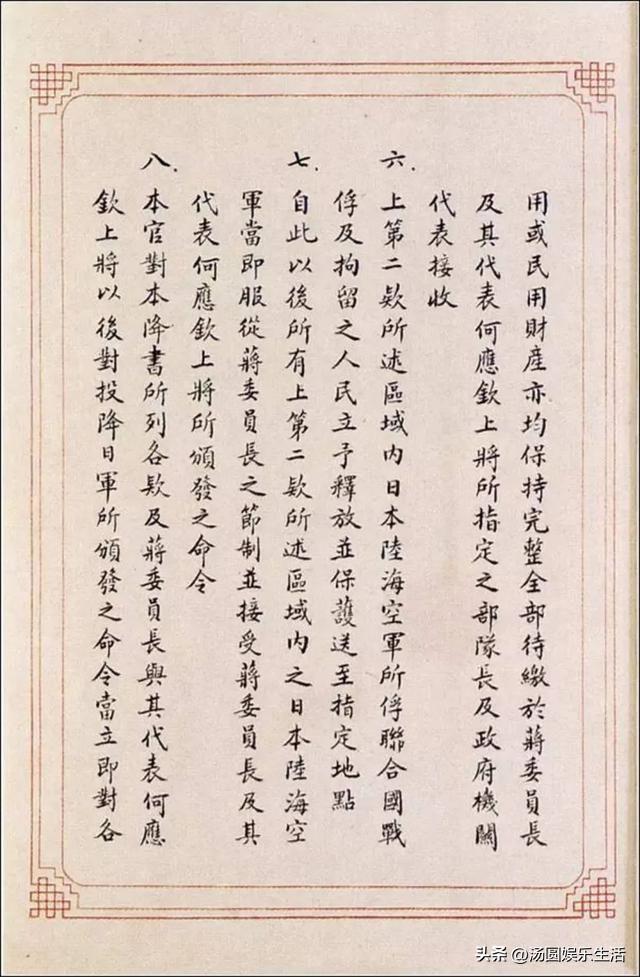 用或民用財產亦均保持完整全部待繳於蔣委員長
及其代表何應欽上將所指定之部隊長及政府機關
代表接收
六.上第二欵所述區域內日本陸海空軍所俘聯合國戰
俘及拘留之人民立予釋放並保護送至指定地點
七.自此以後所有上第二欵所述區域內之日本陸海空
軍當即服從蔣委員長之節制並接受蔣委員長及其
代表何應欽上將所頒發之命令
八.本官對本降書所列各欵及蔣委員長與其代表何應
欽上將以後對投降日軍所頒發之命令當立即對各
头条 @汤圆娱乐生活